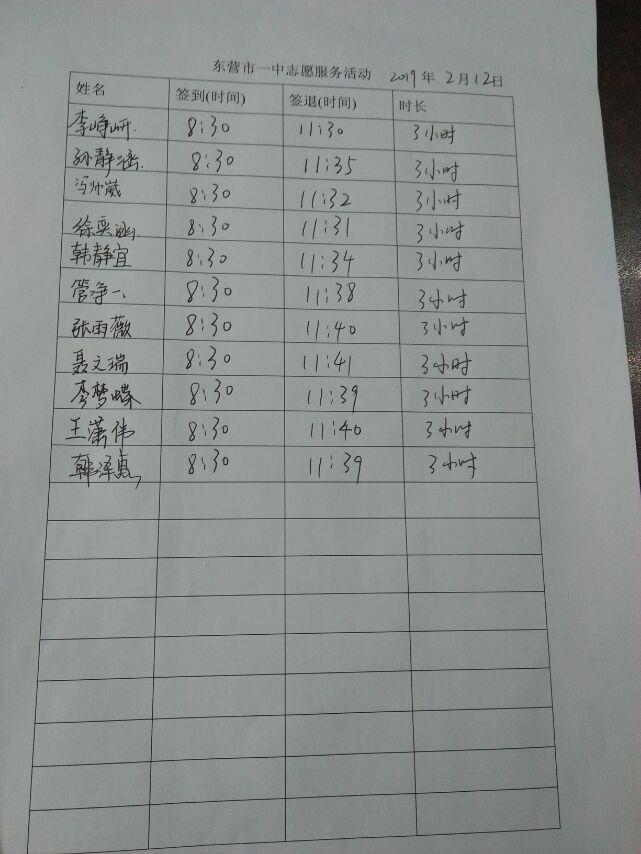 东营市一中志愿服务活动 2019年2月12日
姓名 签到(时间) 签退(时间) 时长
李峥岍 8:30 11:30 3小时
孙静涵 8:30 11:35 3小时
冯帅崴 8:30 11:32 3小时
徐奕涵 8:30 11:31 3小时
韩静宜 8:30 11:34 3小时
管净一 8:30 11:38 3小时
张雨薇 8:30 11:40 3小时
聂文瑞 8:30 11:41 3小时
李梦蝶 8:30 11:39 3小时
王潇伟 8:30 11:40 3小时
韩泽惠 8:30 11:39 3小时